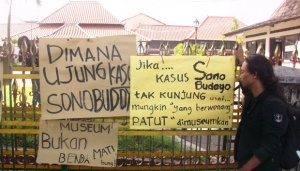 DIMANA
UJUNG KASUS
SONOBUDOYO
MUSEUM
Bukan
BENDA MATI
Jika....
KASUS Sono
Budoyo
tak KUNJUNG usai...
mungkin "yang berwenang
PATUT" dimuseumkan